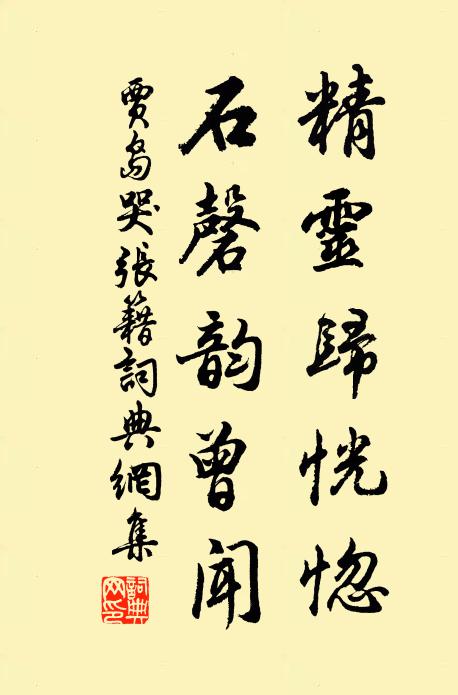 精靈歸恍惚
石磬韵曾聞
賈島哭張籍詞典網集
詞典網印